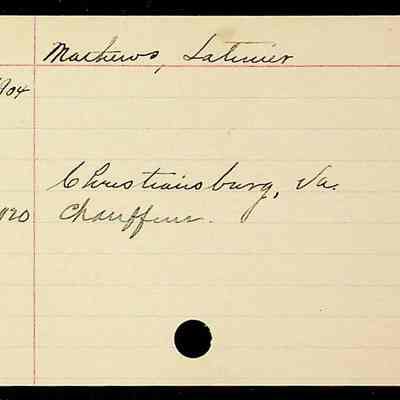 Mathews, Latimer
1904
Christiansburg, Va.
1120 Chauffeur.